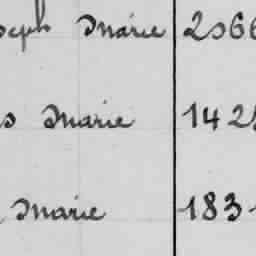 oseph Marie 2066
s Marie 142
Marie 183